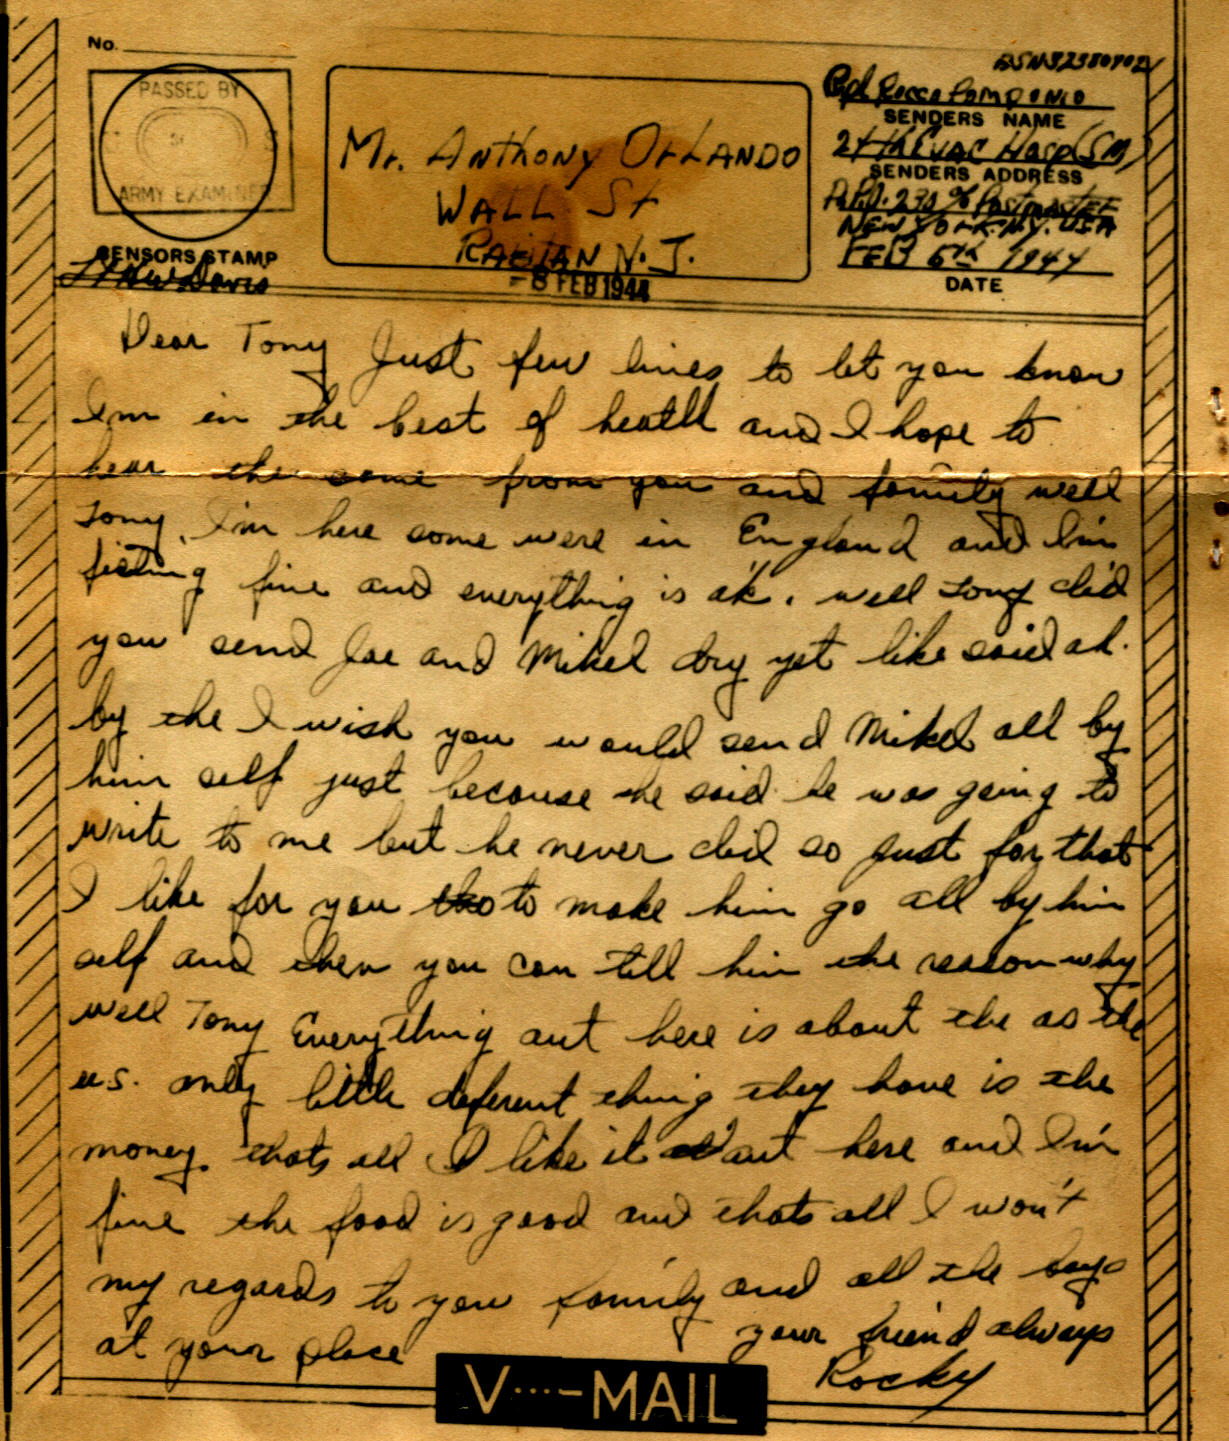 No.
PASSED BY
ARMY EXAMINER
CENSORS STAMP
Davis
Mr. Anthony Orlando
Wall St
Raritan N.J.
-8 FEB 1944
ASN 32380902
Rocco Pomponio
SENDERS NAME
24th Evac Hosp (SM)
SENDERS ADDRESS
A.P.O. 230 % Postmaster
New York. N.Y. USA
Feb 6th 1944
DATE
Dear Tony Just few lines to let you know
I'm in the best of heatll and I hope to
hear the same from you and family well
Tony, I'm here some were in England and I'm
fine and everything is ok. well Tony did
you send Joe and Mikel dry yet like said
by the I wish you would send Mikel all by
him self just because he said he was going to
write to me but he never did so just for that
I like for you to make him go all by him
self and then you can till him the reason why
well Tony Everything out here is about the as the
u.s. only little deferent thing they have is the
money. thats all I like it out here and I'm
fine the food is good and thats all I won't
my regards to you family and all the boys
at your place
your friend always
Rocky
V···-MAIL